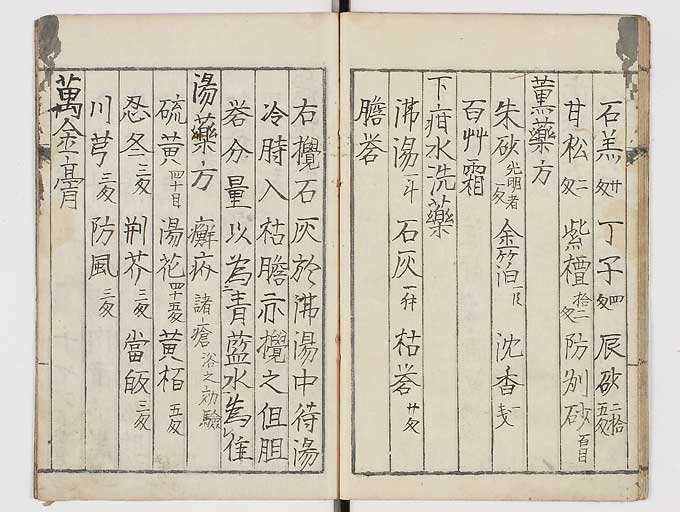 石羔廿匁 丁子四匁 辰砂二拾五匁
甘松二匁 紫檀拾二匁 防剤砂百目
薫藥方
朱砂光明者一匁 金箔一月 沈香一戔
百艸霜
下疳水洗藥
沸湯一斗 石灰一舛 枯礬廿匁
膽礬
右攪石灰於沸湯中待湯
冷時入枯膽亦攪之但胆
礬分量以為青藍水為佳
湯藥方 癬疥諸瘡浴之効驗
硫黄四十目 湯花四十五匁 黄栢五匁
忍冬三匁 荊芥三匁 當皈三匁
川芎三匁 防風三匁
萬金膏